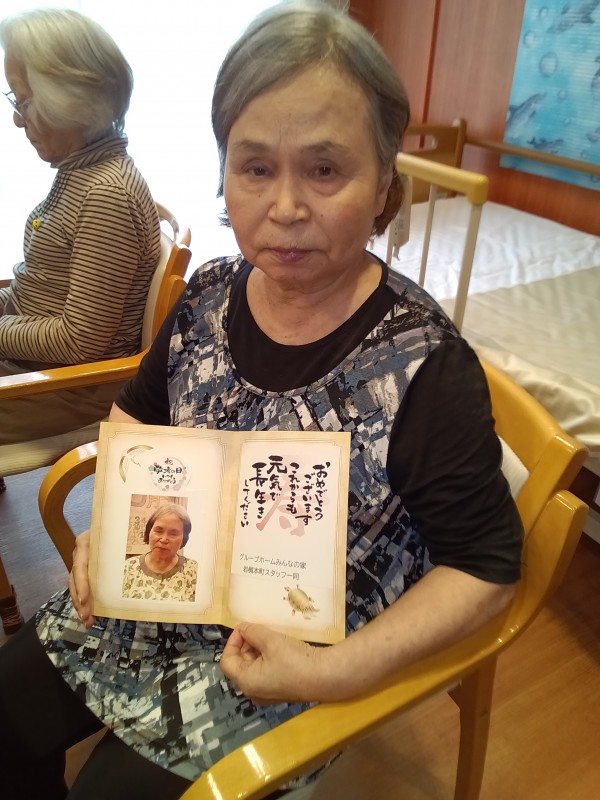 祝
敬老の日
おめでとう
ございます
これからも
元気で
長生き
してください
グループホームみんなの家
スタッフ一同